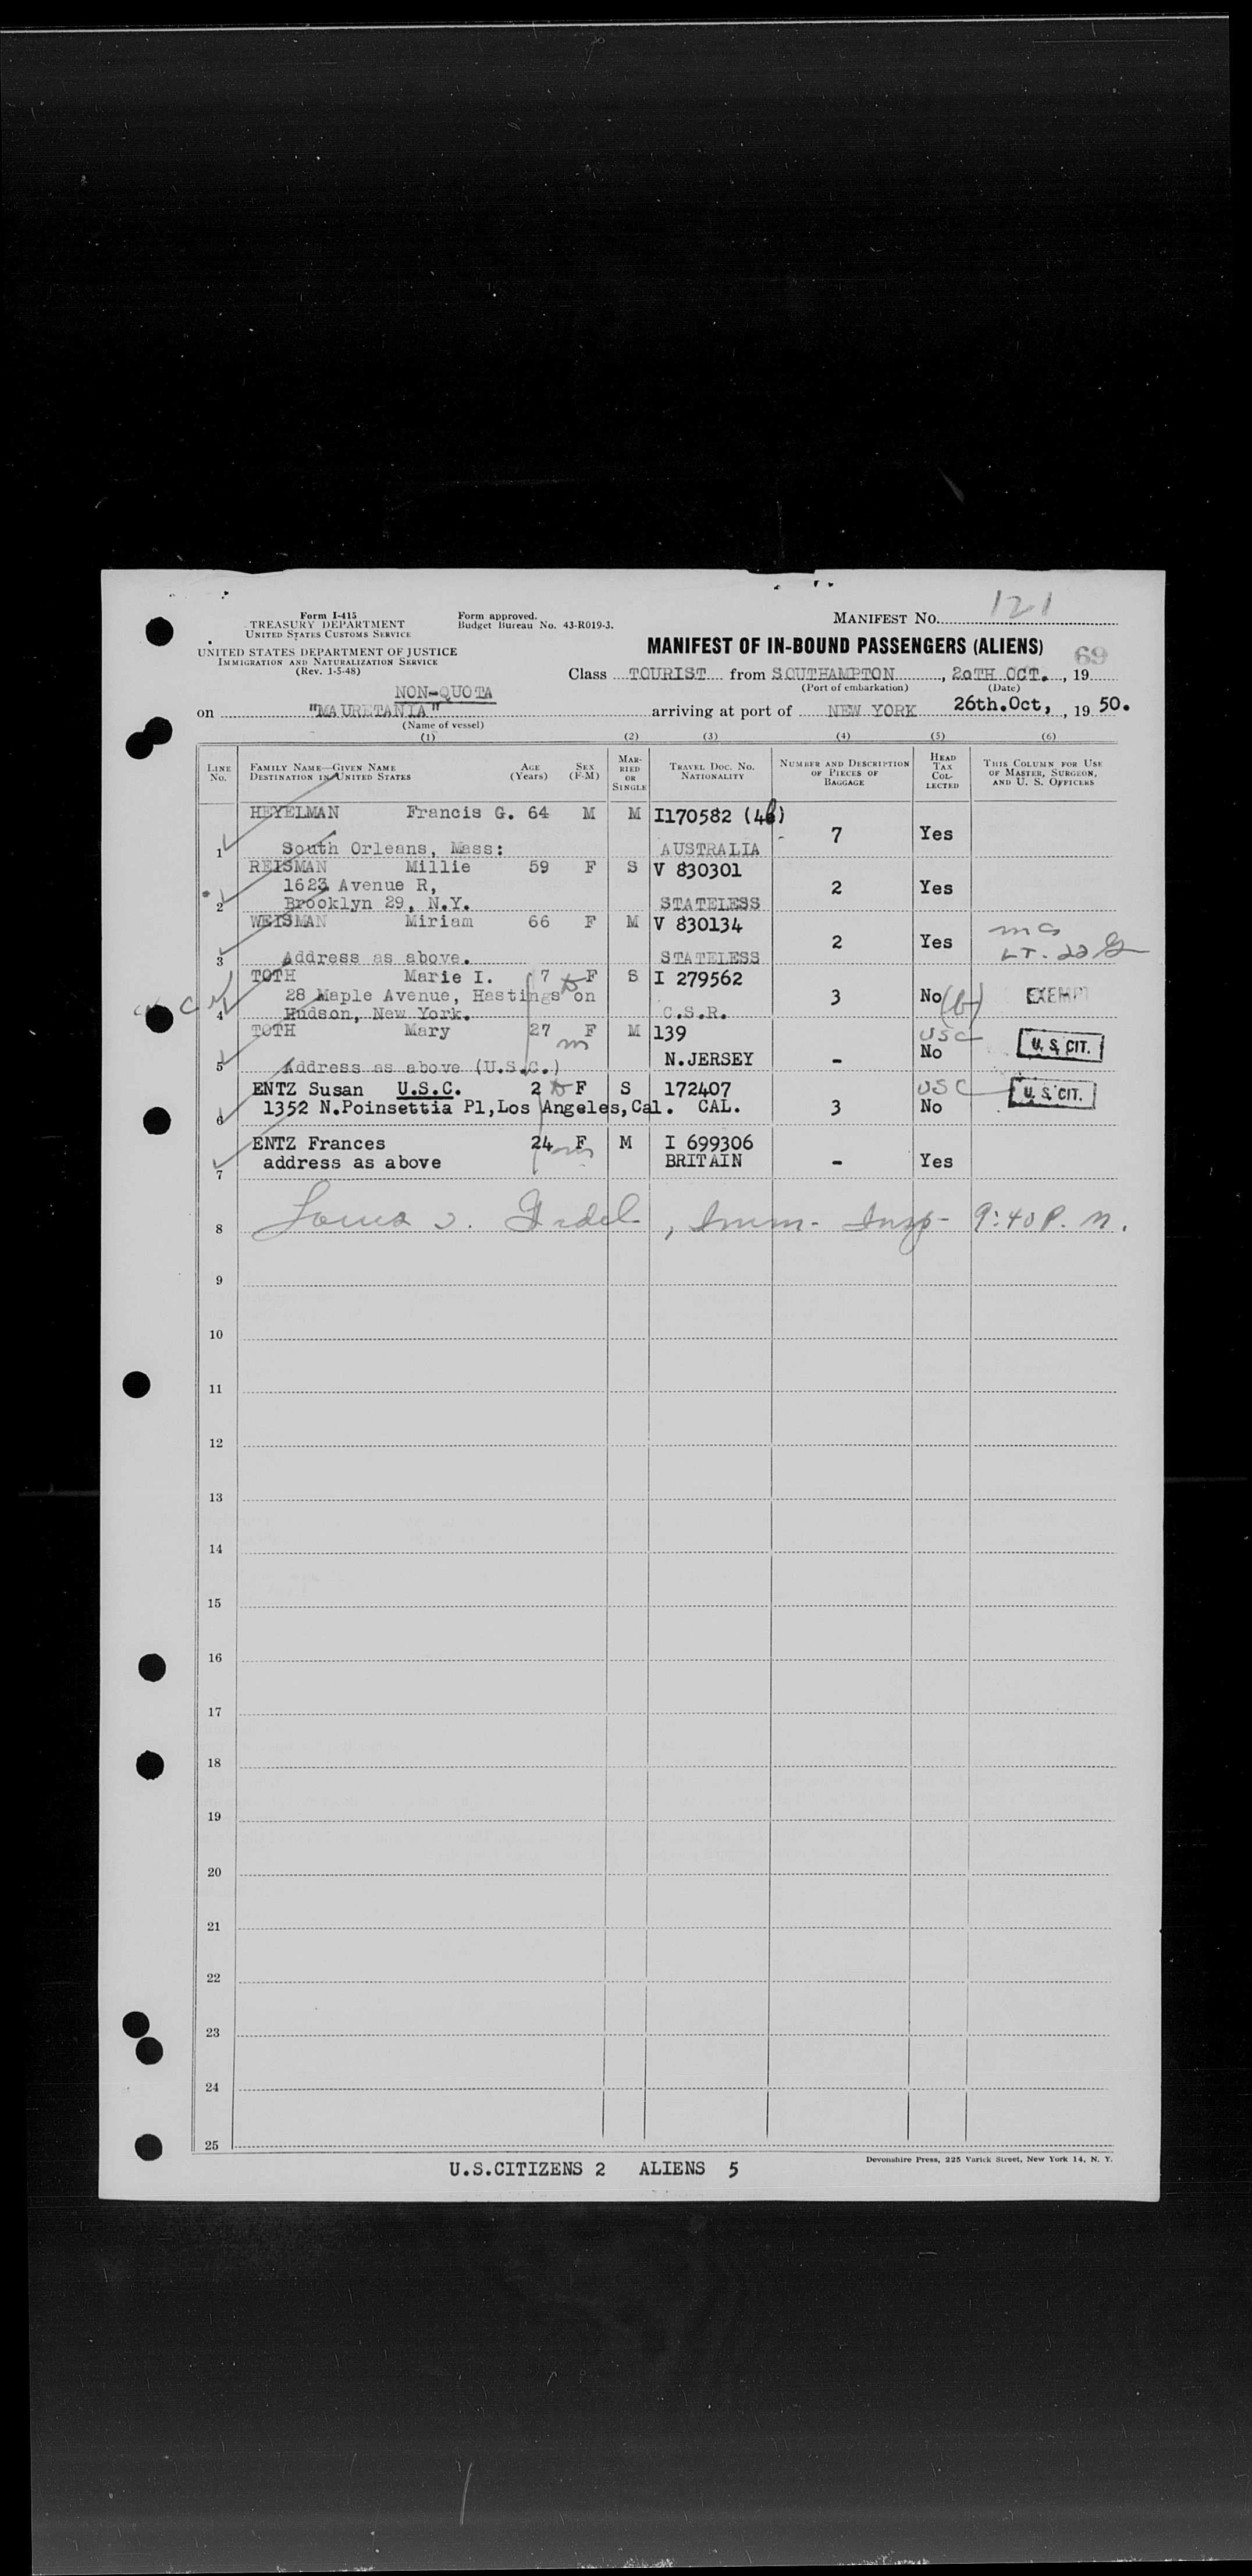 121
Form I-415
TREASURY DEPARTMENT
UNITED STATES CUSTOMS SERVICE
UNITED STATES DEPARTMENT OF JUSTICE
IMMIGRATION AND NATURALIZATION SERVICE
(Rev. 1-5-48)
Form approved.
Budget Bureau No. 43-R019-3.
MANIFEST No.
MANIFEST OF IN-BOUND PASSENGERS (ALIENS)
69
Class TOURIST from SOUTHAMPTON, 20TH OCT., 19
(Port of embarkation) (Date)
NON-QUOTA
on "MAURETANIA" arriving at port of NEW YORK 26th.Oct, , 19 50.
(Name of vessel)
(1) (2) (3) (4) (5) (6)
LINE No.
FAMILY NAME—GIVEN NAME
DESTINATION IN UNITED STATES
AGE (Years)
SEX (F-M)
MARRIED OR SINGLE
TRAVEL DOC. NO. NATIONALITY
NUMBER AND DESCRIPTION OF PIECES OF BAGGAGE
HEAD TAX COLLECTED
THIS COLUMN FOR USE OF MASTER, SURGEON, AND U. S. OFFICERS
HEYELMAN Francis G. 64 M M I170582 (4b)
7 Yes
1 South Orleans, Mass: AUSTRALIA
REISMAN Millie 59 F S V 830301
1623 Avenue R, 2 Yes
2 Brooklyn 29, N.Y. STATELESS
WEISMAN Miriam 66 F M V 830134
2 Yes
3 Address as above. STATELESS
TOTH Marie I. 7 F S I 279562
28 Maple Avenue, Hastings on 3 No (b) EXEMPT
4 Hudson, New York. C.S.R.
TOTH Mary 27 F M 139 USC
m - No U. S. CIT.
5 Address as above (U.S.C.) N.JERSEY
ENTZ Susan U.S.C. 2 F S 172407 USC U. S. CIT.
6 1352 N.Poinsettia Pl,Los Angeles,Cal. CAL. 3 No
ENTZ Frances 24 F M I 699306
7 address as above BRITAIN - Yes
8 Imm. Insp- 9:40 P. M.
9
10
11
12
13
14
15
16
17
18
19
20
21
22
23
24
25
U.S.CITIZENS 2 ALIENS 5
Devonshire Press, 225 Varick Street, New York 14, N. Y.